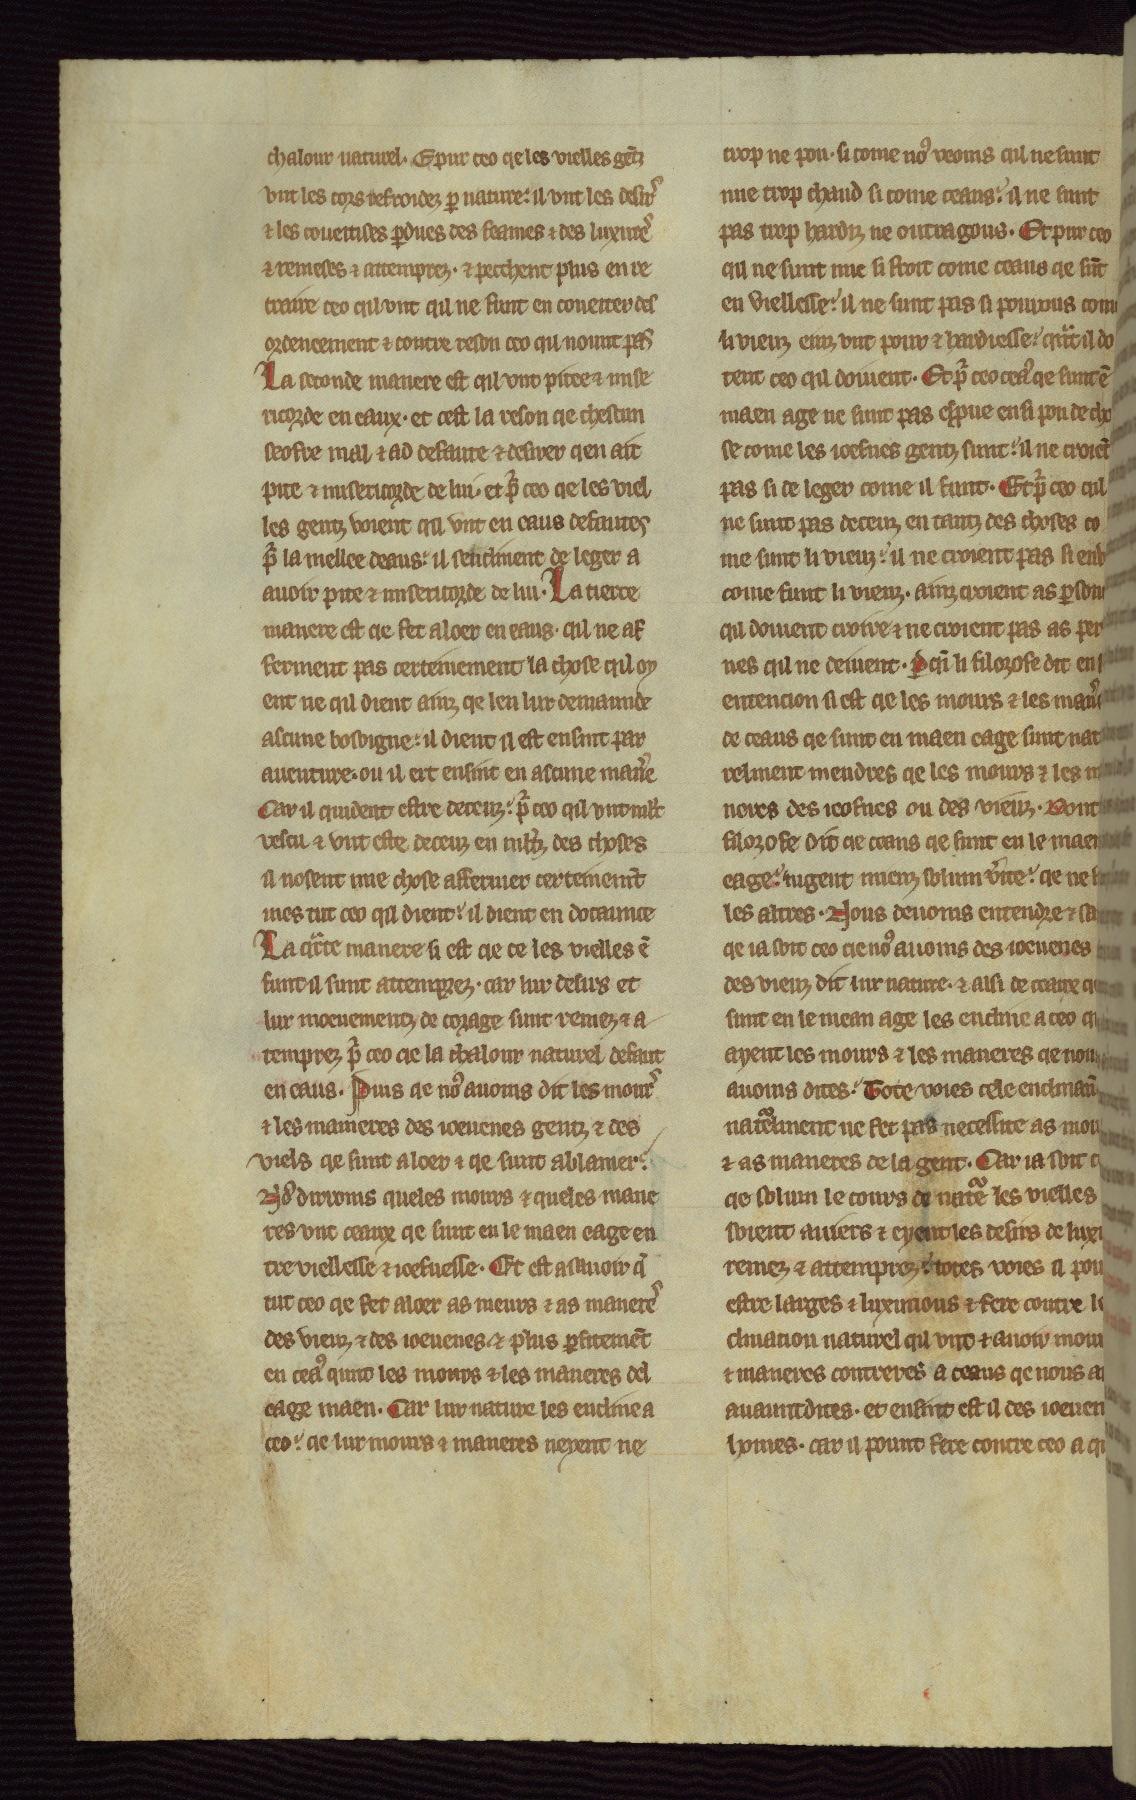 chalour naturel. Epur ceo qe les vielles gētz
vnt les cors refroidez ꝑ nature. il vnt les desirs
⁊ les coueitises ꝑdues des feames ⁊ des luxures
⁊ remeses ⁊ attemprez. ⁊ pecchent plus en re
traire ceo qil vnt qil ne funt en coueiter des
ordenement ⁊ contre reson ceo qil nount pas
La seconde manere est qil vnt pitee ⁊ mise
ricorde en eaux. et cest la reson qe chescun
seofre mal ⁊ ad defaute ⁊ desirer qen ait
pite ⁊ misericorde de lui. et pͬ ceo qe les viel
les gentz voient qil vnt en eaus defautes
pͬ la mellee deaus. il senclinent de leger a
auoir pite ⁊ misericorde de lui. La tierce
manere est qe fet aloer en eaus. qil ne af
ferment pas certeinement la chose qil oy
ent ne qil dient ainz qe len lur demaunde
ascune bosoigne. il dient il est ensint par
auenture. ou il ert ensint en ascune manͤe
Car il quident estre deceuz. pͬ ceo qil vnt mlt
vescu ⁊ vnt este deceuz en mltz des choses
il nosent mie chose affermer certeinemēt
mes tut ceo qil dient. il dient en dotaunce
La qͣrte manere si est qe ce les vielles ē
funt il sunt attemprez. car lur desirs et
lur moeuementz de corage sunt remez ⁊ a
temprez pͬ ceo qe la chalour naturel defaut
en eaus. Puis qe noꝰ auoms dit les mours
⁊ les maineres des ioeuenes gentz ⁊ des
viels qe sunt aloer ⁊ qe sunt a blamer.
Noꝰ dirroms queles mours ⁊ queles mane
res vnt ceaux qe sunt en le maen eage en
tre viellesse ⁊ ioefnesse. Et est a sauoir q̄
tut ceo qe fet aloer as meurs ⁊ as maneres
des vieuz ⁊ des ioeuenes ⁊ plus ꝑfitemēt
en ceaꝰ qunt les mours ⁊ les maneres del
eage maen. Car lur nature les encline a
ceo. qe lur mours ⁊ maneres neyent ne
trop ne pou. si come noꝰ veoms qil ne sunt
mie trop chaud si come ceaus. il ne sunt
pas trop hardiz ne outragous. Et pur ceo
qil ne sunt mie si froit come ceaus qe sūt
en viellesse. il ne sunt pas si pourous com
li vieuz einz vnt pour ⁊ hardiesse. qͣnt il do
tent ceo qil doiuent. Et pͬ ceo ceaꝰ qe sunt ē
maen age ne sunt pas esproue en si pou de cho
se come les ioefnes gentz sunt. il ne croiēt
pas si de leger come il funt. Et pͬ ceo qil
ne sunt pas deceuz en tantz des choses co
me sunt li vieuz. il ne croient pas si enb
come funt li vieuz. ainz croient as ꝑson
qil doiuent croire ⁊ ne croient pas as per
nes qil ne deiuent. li filozofe dit en
entencion si est qe les mours ⁊ les manͤ
de ceaus qe sunt en maen eage sunt nat
relment meudres qe les mours ⁊ les m
neres des ieofnes ou des vieuz. Dont
filozofe dit qe ceaus qe sunt en le maen
eage. iugent mieuz solum vͬite. qe ne f
les altres. Nous deuoms entendre ⁊ sa
qe ia soit ceo qe noꝰ auoms des ioeuenes
des vieuz dit lur nature. ⁊ alsi de ceaux q
sunt en le mean age les encline a ceo q
ayent les mours ⁊ les maneres qe nou
auoms dites. Tote voies cele enclinaū
natͣelment ne fet pas necessite as mou
⁊ as maneres de la gent. Car ia soit c
qe solum le cours de natͣe les vielles
soient auiers ⁊ eyent les desirs de luxu
remez ⁊ attemprez. totes voies il pou
estre larges ⁊ luxurious ⁊ fere contre l
clinacion naturel qil vnt ⁊ auoir mour
⁊ maneres contreres a ceaus qe nous a
auaunt dites. et ensint est il des ioeuen
homes. car il pount fere contre ceo a q